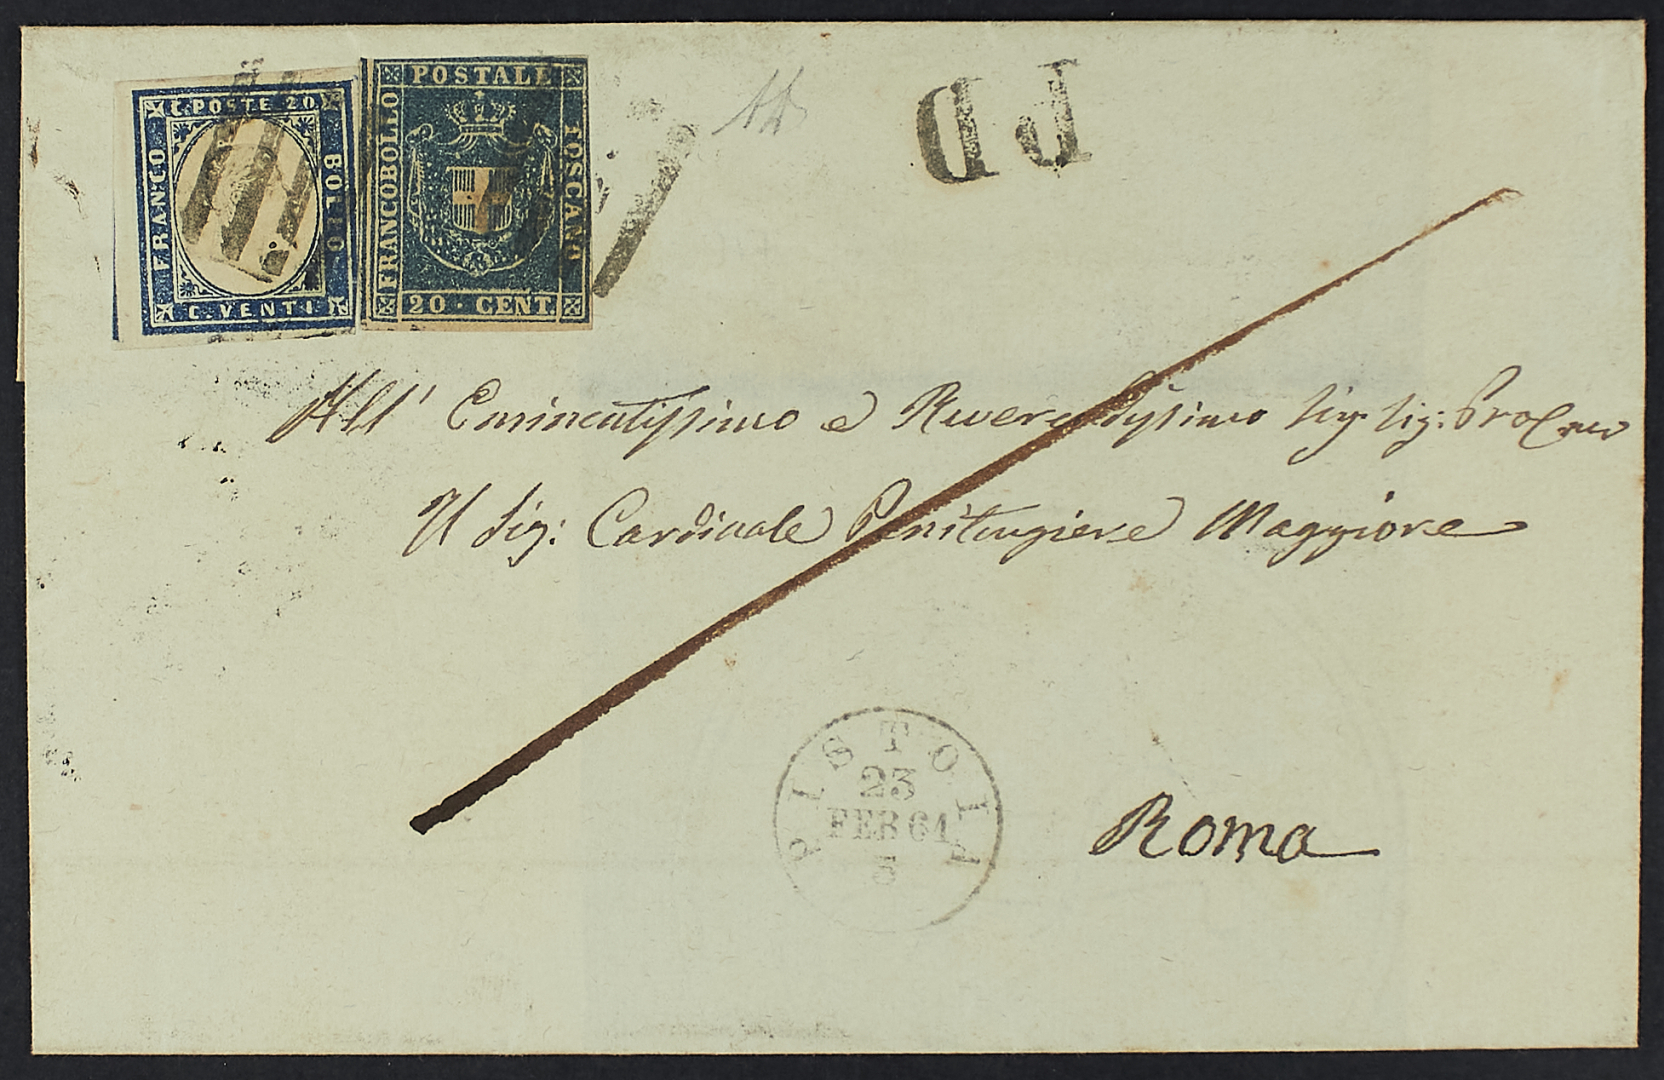 C. POSTE 20
FRANCO
BOLLO
C. VENTI
POSTALE
FRANCOBOLLO
TOSCANO
20 · CENT.
PD
All' Eminentissimo e Reverendissimo Sig. Sig: Prõn
Il Sig: Cardinale Penitenziere Maggiore
PISTOIA
23
FEB 61
5
Roma